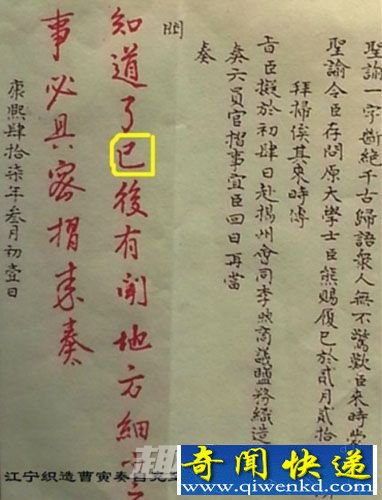 聖諭一字斷絕千古歸語衆人無不驚歎臣來時
聖諭令臣存問原大學士臣熊賜履已於貳月貳拾
拜掃俟其來時傳
旨臣擬於初肆日赴揚州會同李煦商議鹽務織造
奏六員官摺事宜臣回日再當
奏
知道了已後有聞地方細
事必具密摺來奏
康熙肆拾柒年叁月初壹日
江宁织造曹寅奏
奇闻快递
www.qiwenkd.com